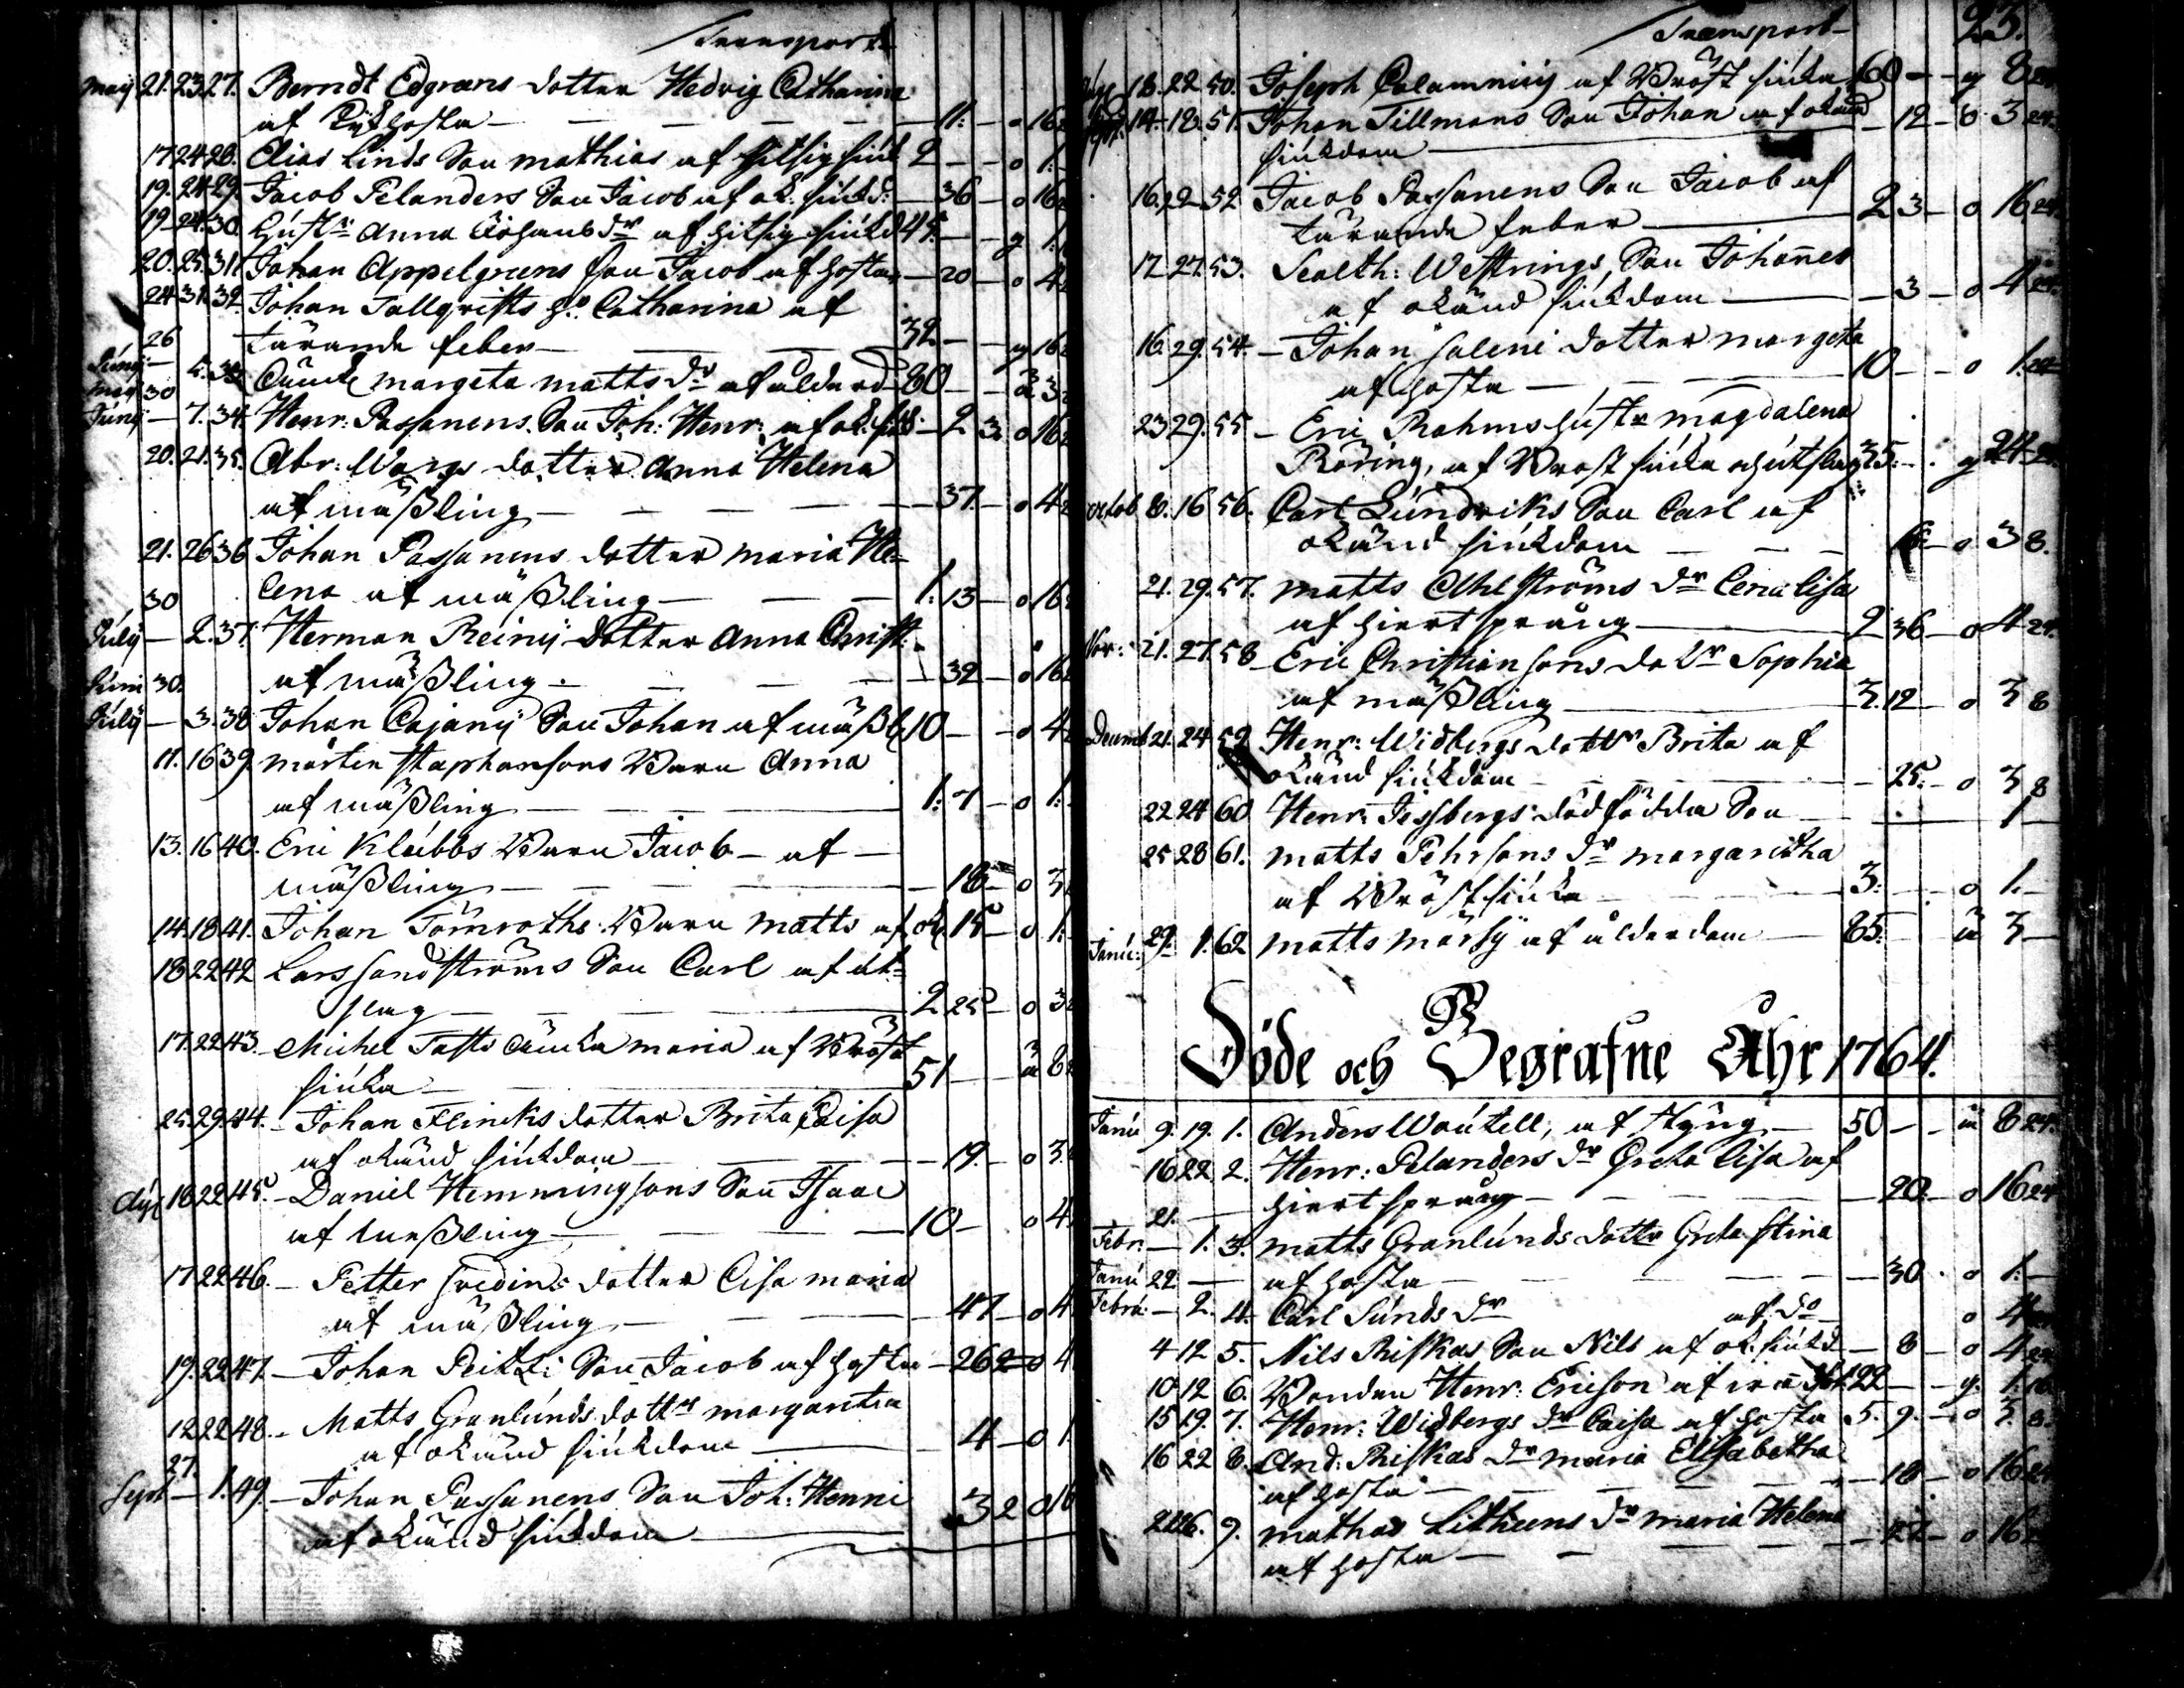 Transport
May 21. 23. 27. Berndt Edgrens dotter Hedvig Catharina
af Kikhosta — 11. — o 16
17 24 28. Elias Linds Son Mathias af hitsig siuk 2 — — o 1.
19. 24 29. Jacob Pelanders Son Jacob af ok. siukd: — 36 — o 16
19 24. 30. Hustr: Anna Johans dr af hitsig siukd 45. — — g 1.
20. 25. 31. Johan Appelgrens Son Jacob af hosta — 20 — o 4
24 31. 32. Johan Tallqvists h:o Catharina af
26 tärande feber — 32 — — g 16
Junij — 5. 33. Änck Margeta Matts dr af ålderd 80 — — ä 3
May 30
Junij — 7. 34. Henr: Passanens Son Joh: Henr: af ok: siukd — 2 3. o 16
20. 21. 35. Abr: Wargs dotter Anna Helena
af mäßling — — 37. — o 4
21. 26 36 Johan Passanens dotter Maria He-
lena af mäßling — 1. 13 — o 16
30
July — 2. 37. Herman Reinij dotter Anna Christ:
af mäßling. — 32 — o 16
Juni 30.
July — 3. 38. Johan Cajanij Son Johan af mäßl 10 — — o 4
11. 16 39. Mårten Staphansons Barn Anna
af mäßling — 1: 7 — o 1.
13. 16 40. Eric Klubbs Barn Jacob — af —
mäßling — 18 — o 3
14. 18 41. Johan Törnroths Barn Matts af ok 15 — o 1.
18 22 42 Lars Sandströms Son Carl af ut-
slag — 2 25 — o 3
17. 22 43. Michel Tasts Änka Maria af Bröst
siuka — 51 — ä 8
25. 29 44. Johan Flincks dotter Brita Caisa
af okänd siukdom — 19. — o 3.
Aug 18 22 45. Daniel Hemmingsons Son Isaac
af meßling — 10 — o 4.
17 22 46. Petter Svedins dotter Lisa Maria
af mäßling — 47 — o 4
19. 22 47. Johan Son Jacob af hosta — 26 2 — o 4
12 22 48. Matts Granlunds dottr Margaretha
af okänd siukdom — 4 — o 1
27.
Sept — 1. 49. Johan Passanens Son Joh: Henric
af okänd siukdom — 3 2 o 16
Transport 23.
18. 22 50. Joseph Calamnius af Bröst siuka 60 — — g 8 24
Sept. 14. 18. 51. Johan Tillmans Son Johan af okänd — 12 — o 3 24.
siukdom
16. 22 52 Jacob Passanens Son Jacob af
tärande feber — 2 3 — o 16 24
17 27 53. Sealth: Westrings Son Johannes
af okänd siukdom — 3 — o 4 24.
16. 29. 54. Johan Saleni dotter Margeta
af hosta — 10 — — o 1. 24
23 29. 55 — Eric Rahms hustr Magdalena
Röring, af Brost siuka utslag 35. — g 24
Octob 8. 16 56. Carl Lundriks Son Carl af
okänd siukdom — — o 3 8.
21. 29. 57. Matts Ahlströms dr Lena Lisa
af hiertsprång — 2 36 — o 4 24.
Nov: 21. 27 58 Eric Christiansons dottr Sophia
af mäßling — 3. 12 — o 3 8
Decemb 21. 24 59 Henr: Widbergs dottr Brita af
okänd siukdom — 25. — o 3 8
22 24 60 Henr: Jessbergs dödfödda Son — 1 —
25 28 61. Matts Pehrsons dr Margaretha
af Bröstsiuka — 3. — o 1. —
Janu: 29. 1. 62 Matts Marsy af ålderdom — 85. ä 3 —
Döde och Begrafne Åhr 1764.
Janu 9. 19. 1. Anders Woutell, af styng — 50 — — ä 8 24.
16 22 2. Henr: Pelanders dr Greta Lisa af
21. — hiertsprång — 20. — o 16 24
Febr: — 1. 3. Matts Granlunds dottr Greta Stina
Janu 22. — af hosta — 30. o 1. —
Febru: — 2. 4. Carl Sunds dr af do — o 4
4 12 5. Nils Riskas Son Nils af ok. siukd — 8 — o 4 24
10 12 6. Bonden Henr: Ericson af 22 — — g. 1. 16
15 19. 7. Henr: Widbergs dr Caisa af hosta 5. 9. — o 3. 8.
16 22 8. And: Riskas dr Maria Elisabetha
af hosta — 18 — o 16 24
22 26. 9. Mathas Litheens dr Maria Helena
af hosta — 27 — o 16